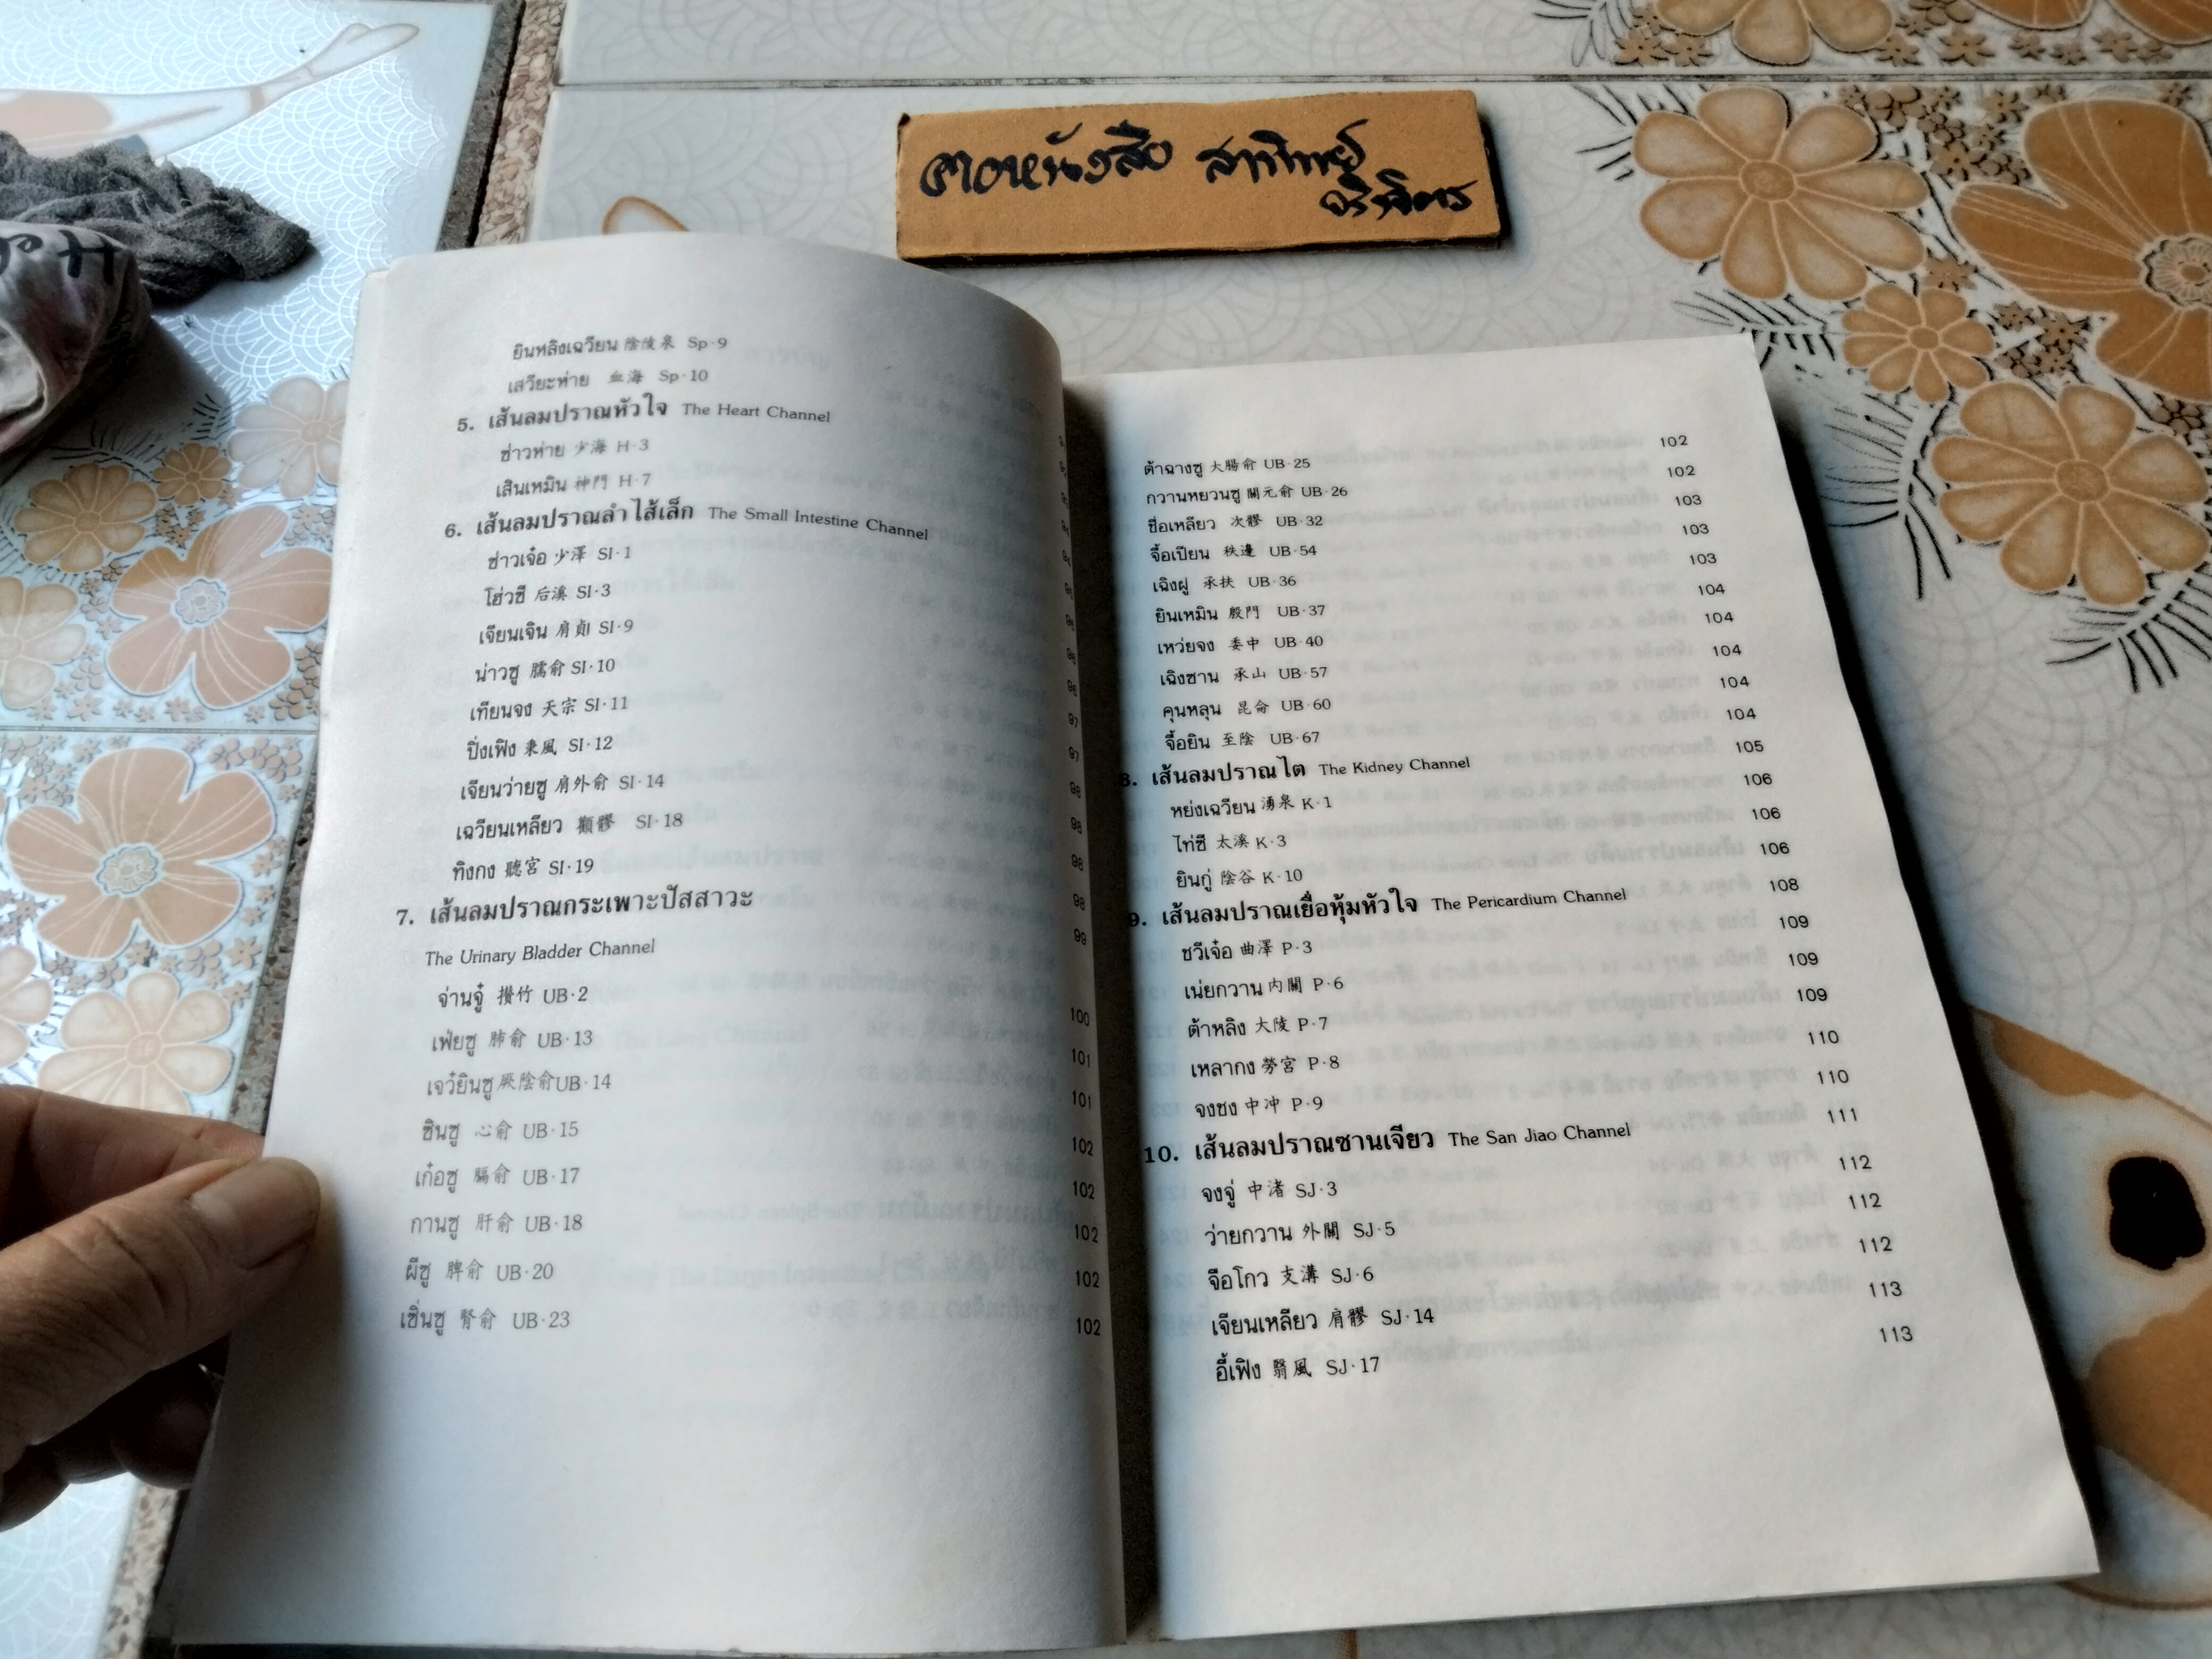 ยินหลิงเฉวียน 陰陵泉 Sp·9
เสวียะห่าย 血海 Sp·10
5. เส้นลมปราณหัวใจ The Heart Channel
ซ่าวห่าย 少海 H·3
เสินเหมิน 神門 H·7
6. เส้นลมปราณลำไส้เล็ก The Small Intestine Channel
ซ่าวเจ๋อ 少澤 SI·1
โฮ่วซี 后溪 SI·3
เจียนเจิน 肩貞 SI·9
น่าวซู 臑俞 SI·10
เทียนจง 天宗 SI·11
ปิ่งเฟิง 秉風 SI·12
เจียนว่ายซู 肩外俞 SI·14
เฉวียนเหลียว 顴髎 SI·18
ทิงกง 聽宮 SI·19
7. เส้นลมปราณกระเพาะปัสสาวะ
The Urinary Bladder Channel
จ่านจู๋ 攢竹 UB·2 100
เฟ่ยซู 肺俞 UB·13 101
เจวี๋ยินซู 厥陰俞 UB·14 101
ซินซู 心俞 UB·15 102
เก๋อซู 膈俞 UB·17 102
กานซู 肝俞 UB·18 102
ผีซู 脾俞 UB·20 102
เซิ่นซู 腎俞 UB·23 102
ต้าฉางซู 大腸俞 UB·25 102
กวานหยวนซู 關元俞 UB·26 102
ซื่อเหลียว 次髎 UB·32 103
จื้อเปียน 秩邊 UB·54 103
เฉิงฝู 承扶 UB·36 103
ยินเหมิน 殷門 UB·37 104
เหว่ยจง 委中 UB·40 104
เฉิงซาน 承山 UB·57 104
คุนหลุน 昆侖 UB·60 104
จื้อยิน 至陰 UB·67 104
8. เส้นลมปราณไต The Kidney Channel 105
หย่งเฉวียน 湧泉 K·1 106
ไท่ซี 太溪 K·3 106
ยินกู่ 陰谷 K·10 106
9. เส้นลมปราณเยื่อหุ้มหัวใจ The Pericardium Channel 108
ชวีเจ๋อ 曲澤 P·3 109
เน่ยกวาน 内關 P·6 109
ต้าหลิง 大陵 P·7 109
เหลากง 勞宮 P·8 110
จงชง 中冲 P·9 110
10. เส้นลมปราณซานเจียว The San Jiao Channel 111
จงจู่ 中渚 SJ·3 112
ว่ายกวาน 外關 SJ·5 112
จือโกว 支溝 SJ·6 112
เจียนเหลียว 肩髎 SJ·14 113
อี้เฟิง 翳風 SJ·17 113